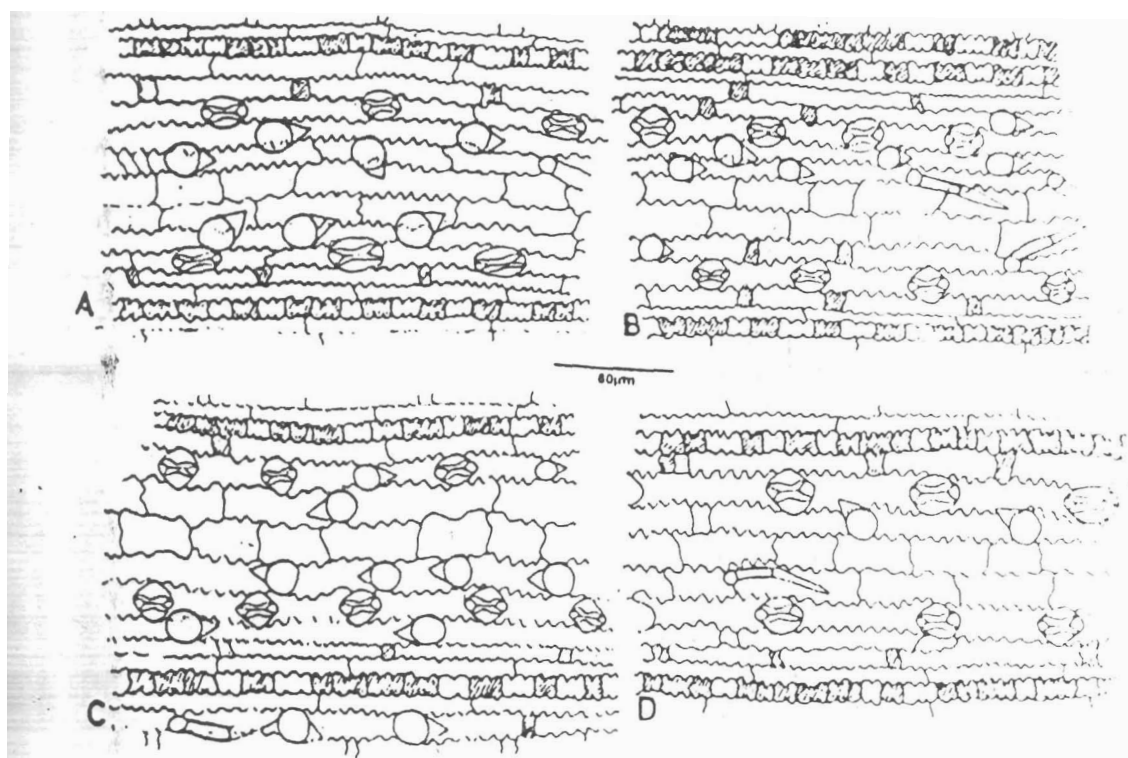 A
B
60µm
C
D